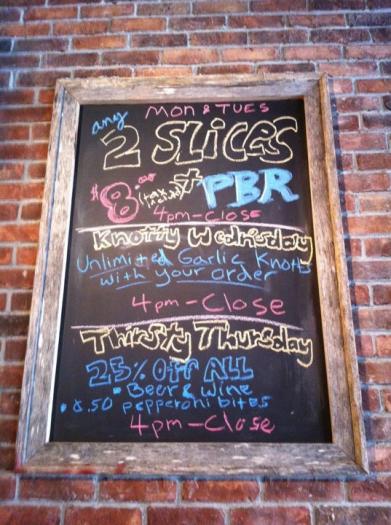 MON & TUES
any
2 SLICES
+
$8.00 (tax included) PBR
4pm-CLOSE
Knotty Wednesday
Unlimited Garlic Knots
with your order
4pm-Close
Thirsty Thursday
25% OFF ALL
• Beer & Wine
• .50 pepperoni bites
4pm-Close